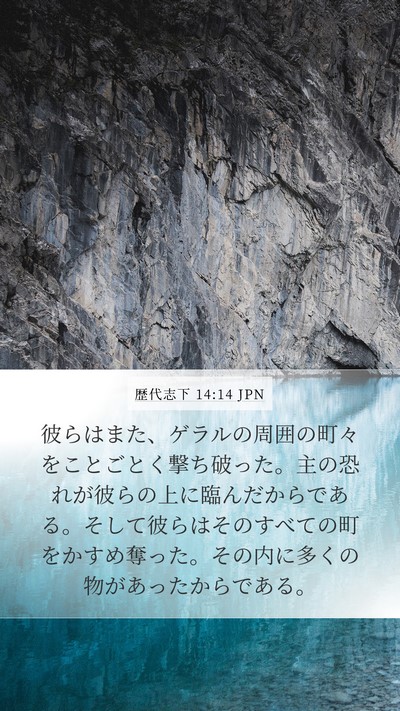 歴代志下 14:14 JPN
彼らはまた、ゲラルの周囲の町々
をことごとく撃ち破った。主の恐
れが彼らの上に臨んだからであ
る。そして彼らはそのすべての町
をかすめ奪った。その内に多くの
物があったからである。